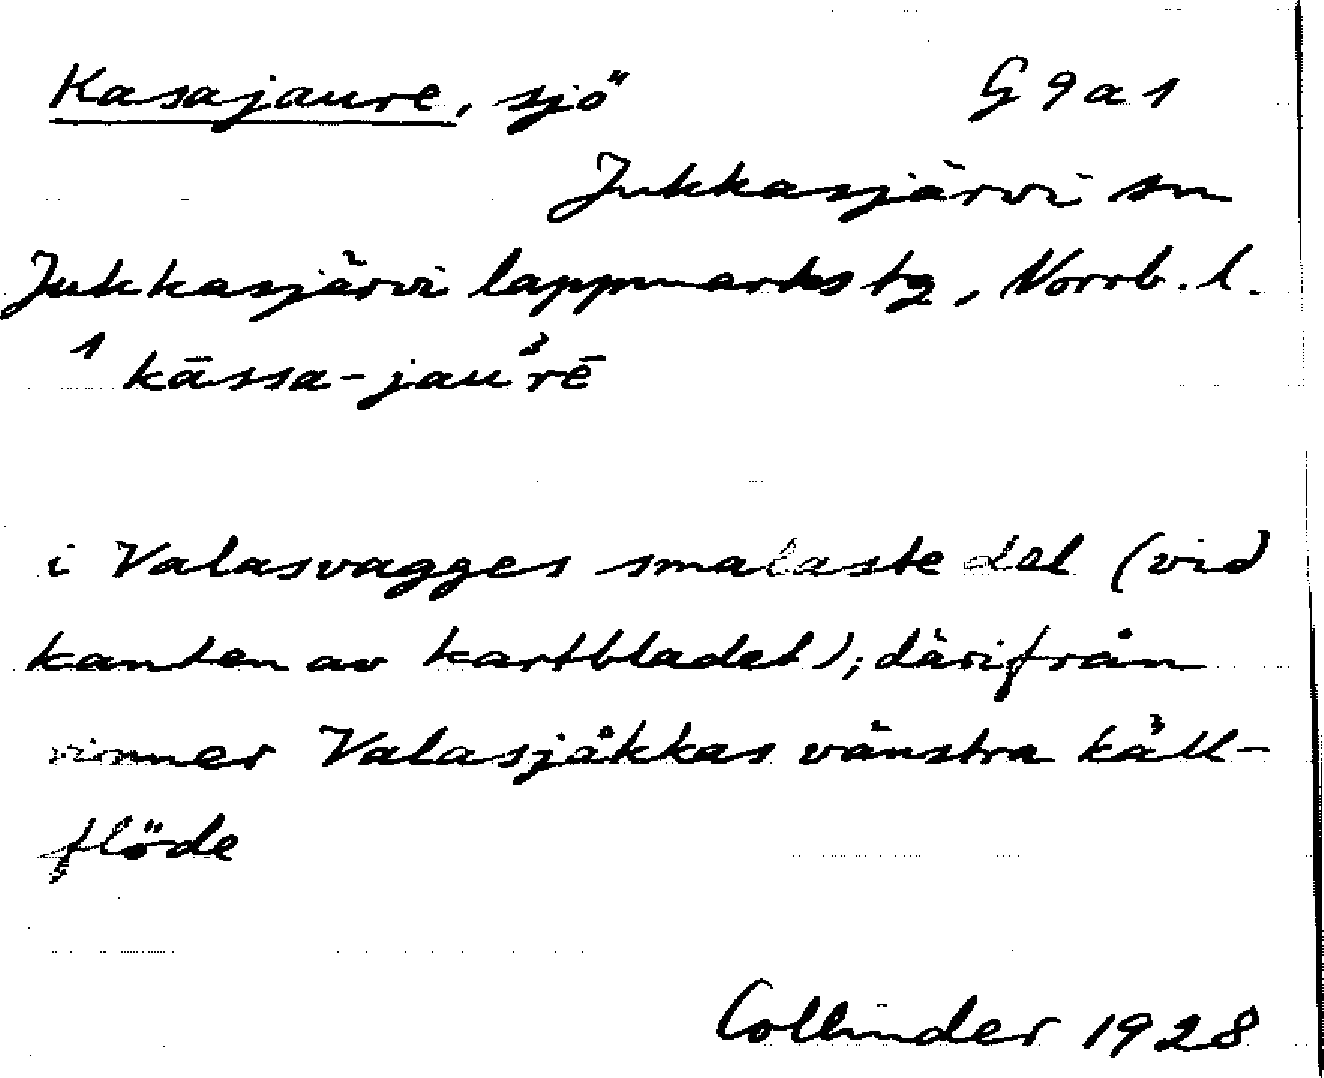 Kasajaure, sjö G 9 a 1
Jukkasjärvi sn
Jukkasjärvi lappmarks tg, Norrb. l.
1 kāssa-jauʾrē
i Valasvagges smalaste del (vid
kanten av kartbladet); därifrån
rinner Valasjåkkas vänstra käll-
flöde
Collinder 1928